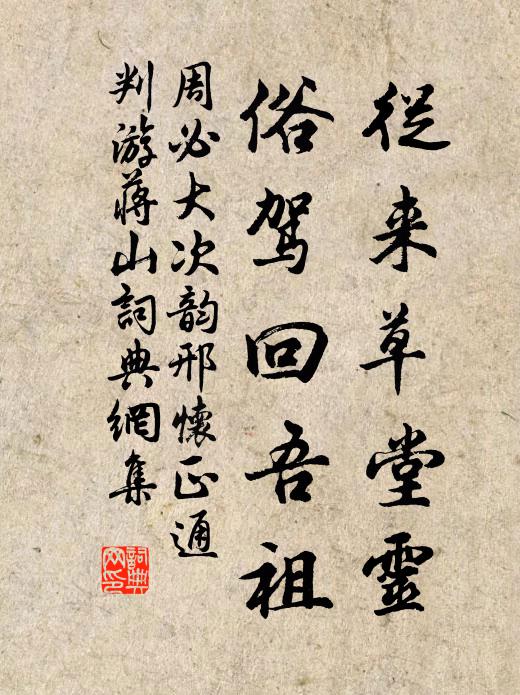 従来草堂靈
俗駕回吾祖
周必大次韵邢懷正通
判游蔣山詞典網集
詞典
网印